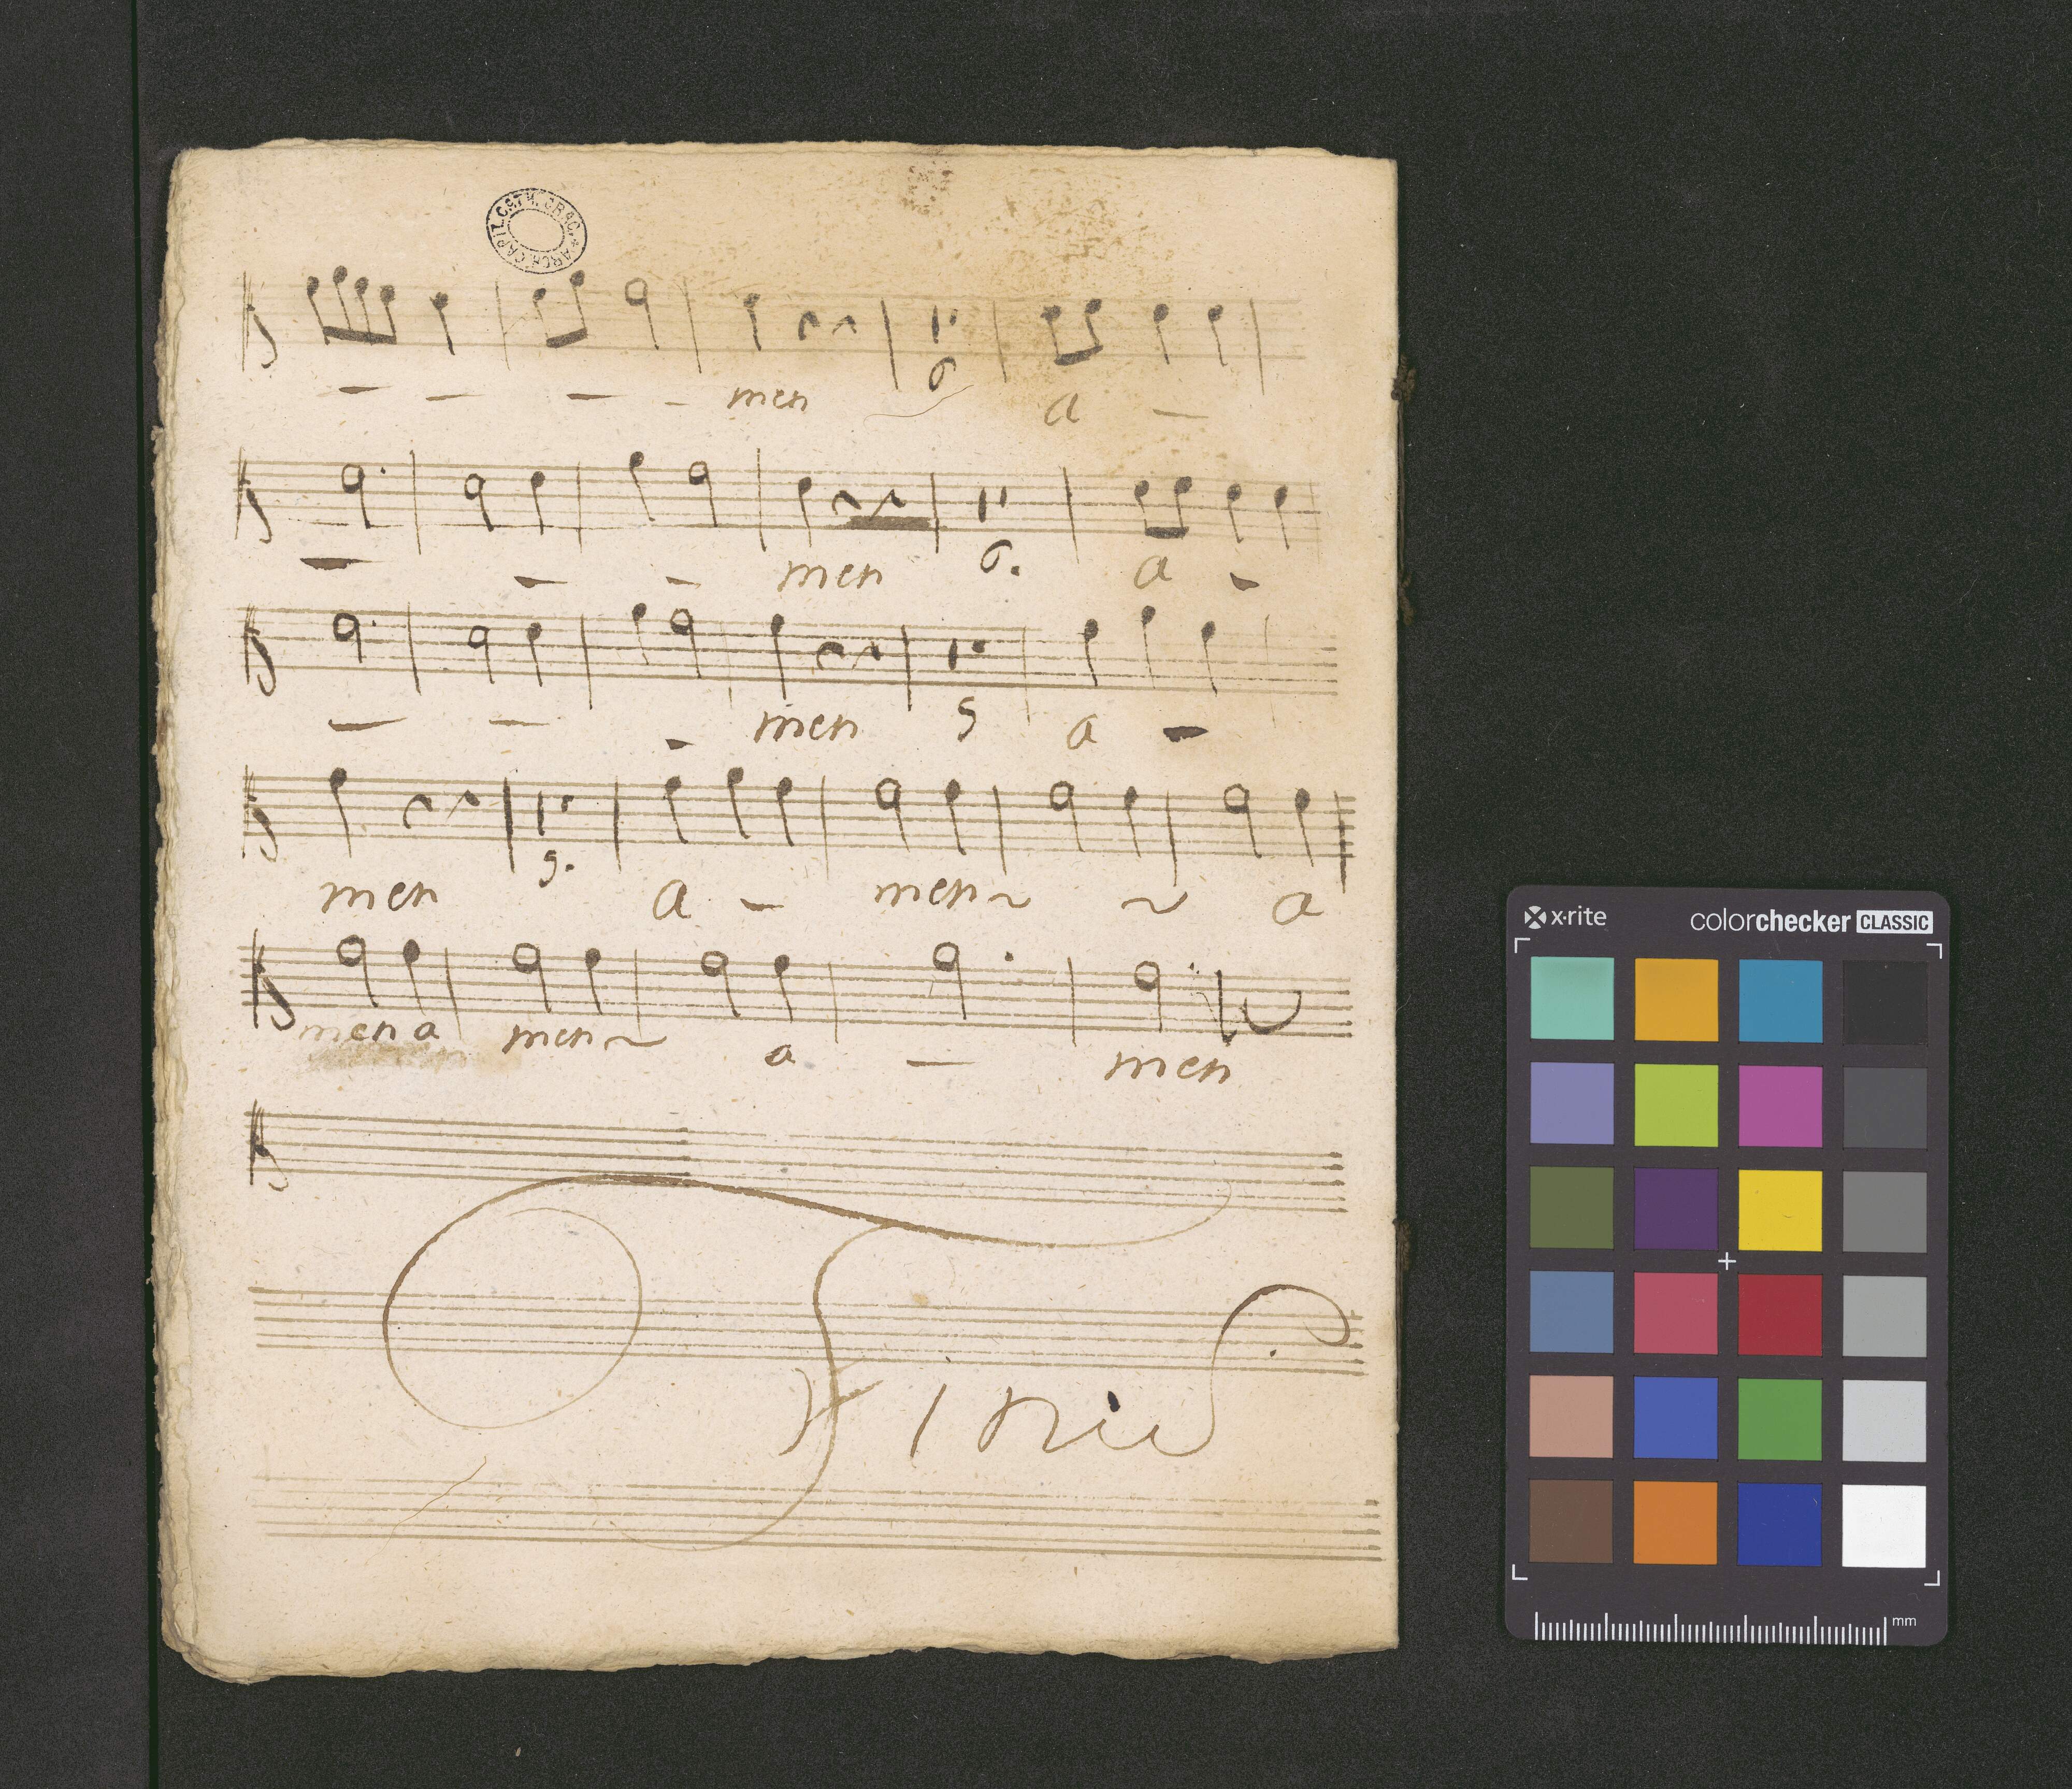 ARCH. CAPIT. CATH. CRAC.
men 6 a
men 6. a
men 5 a
men 5. a men a
men a men a men
Finis
x·rite colorchecker CLASSIC
mm